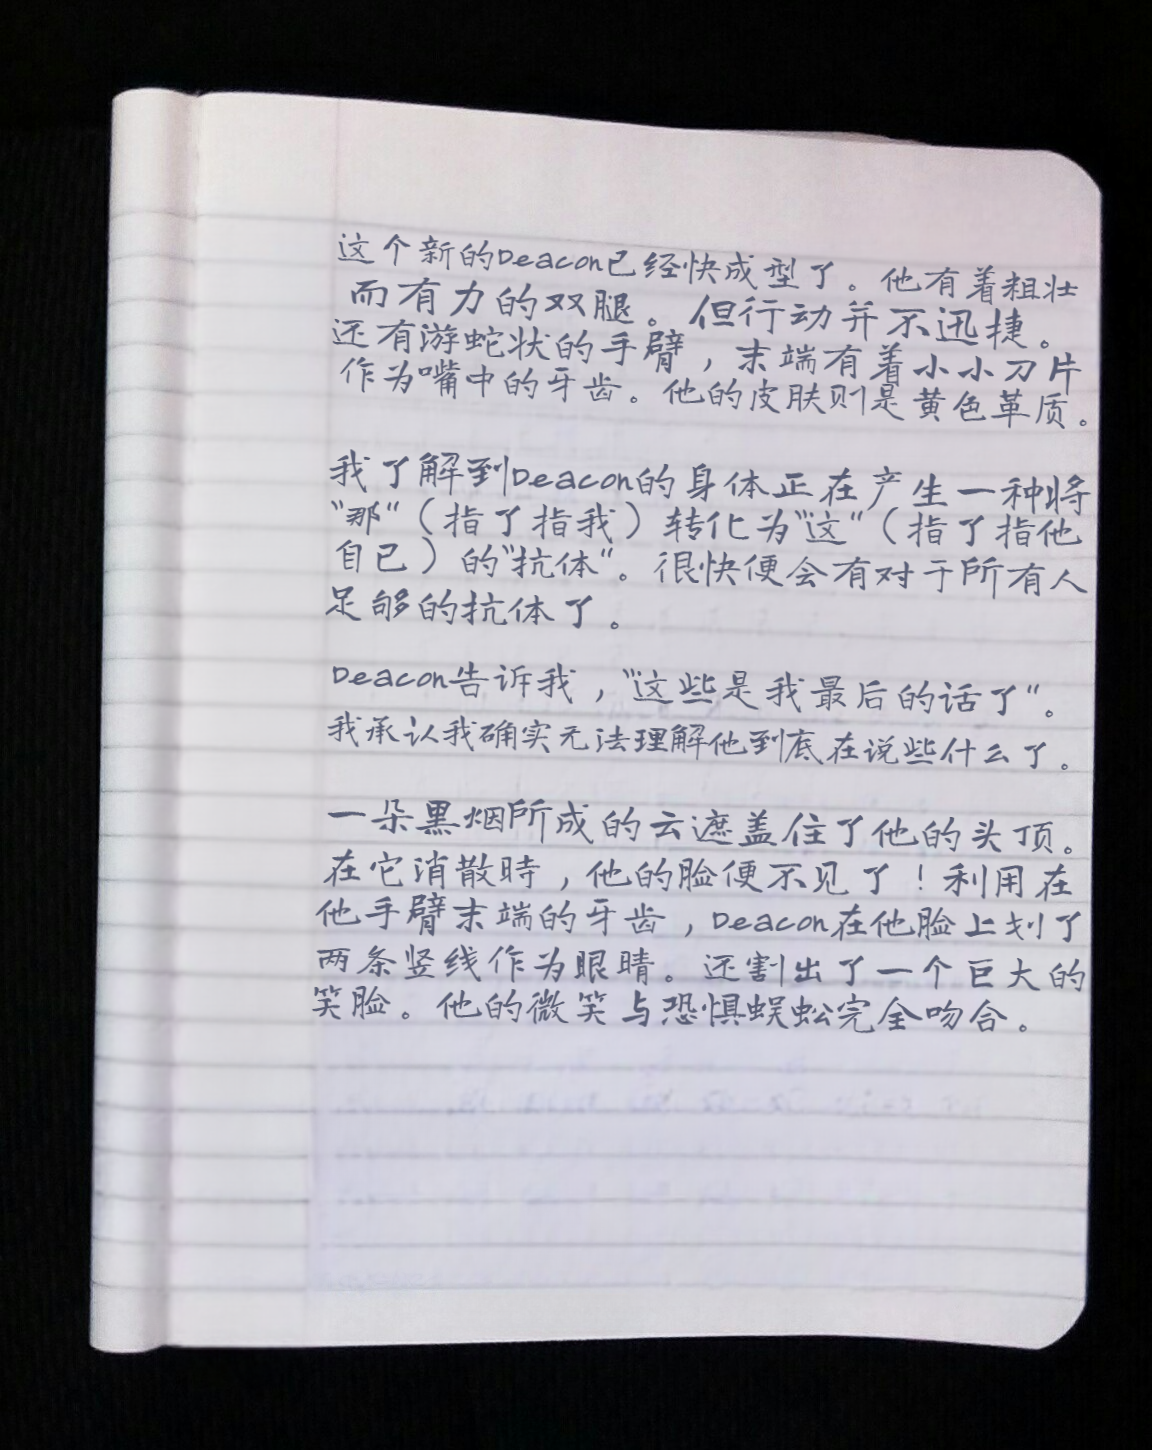 这个新的Deacon已经快成型了。他有着粗壮
而有力的双腿。但行动并不迅捷。
还有游蛇状的手臂，末端有着小小刀片
作为嘴中的牙齿。他的皮肤则是黄色革质。
我了解到Deacon的身体正在产生一种将
"那"（指了指我）转化为"这"（指了指他
自己）的"抗体"。很快便会有对于所有人
足够的抗体了。
Deacon告诉我，"这些是我最后的话了"。
我承认我确实无法理解他到底在说些什么了。
一朵黑烟所成的云遮盖住了他的头顶。
在它消散時，他的脸便不见了！利用在
他手臂末端的牙齿，Deacon在他脸上划了
两条竖线作为眼睛。还割出了一个巨大的
笑脸。他的微笑与恐惧蜈蚣完全吻合。